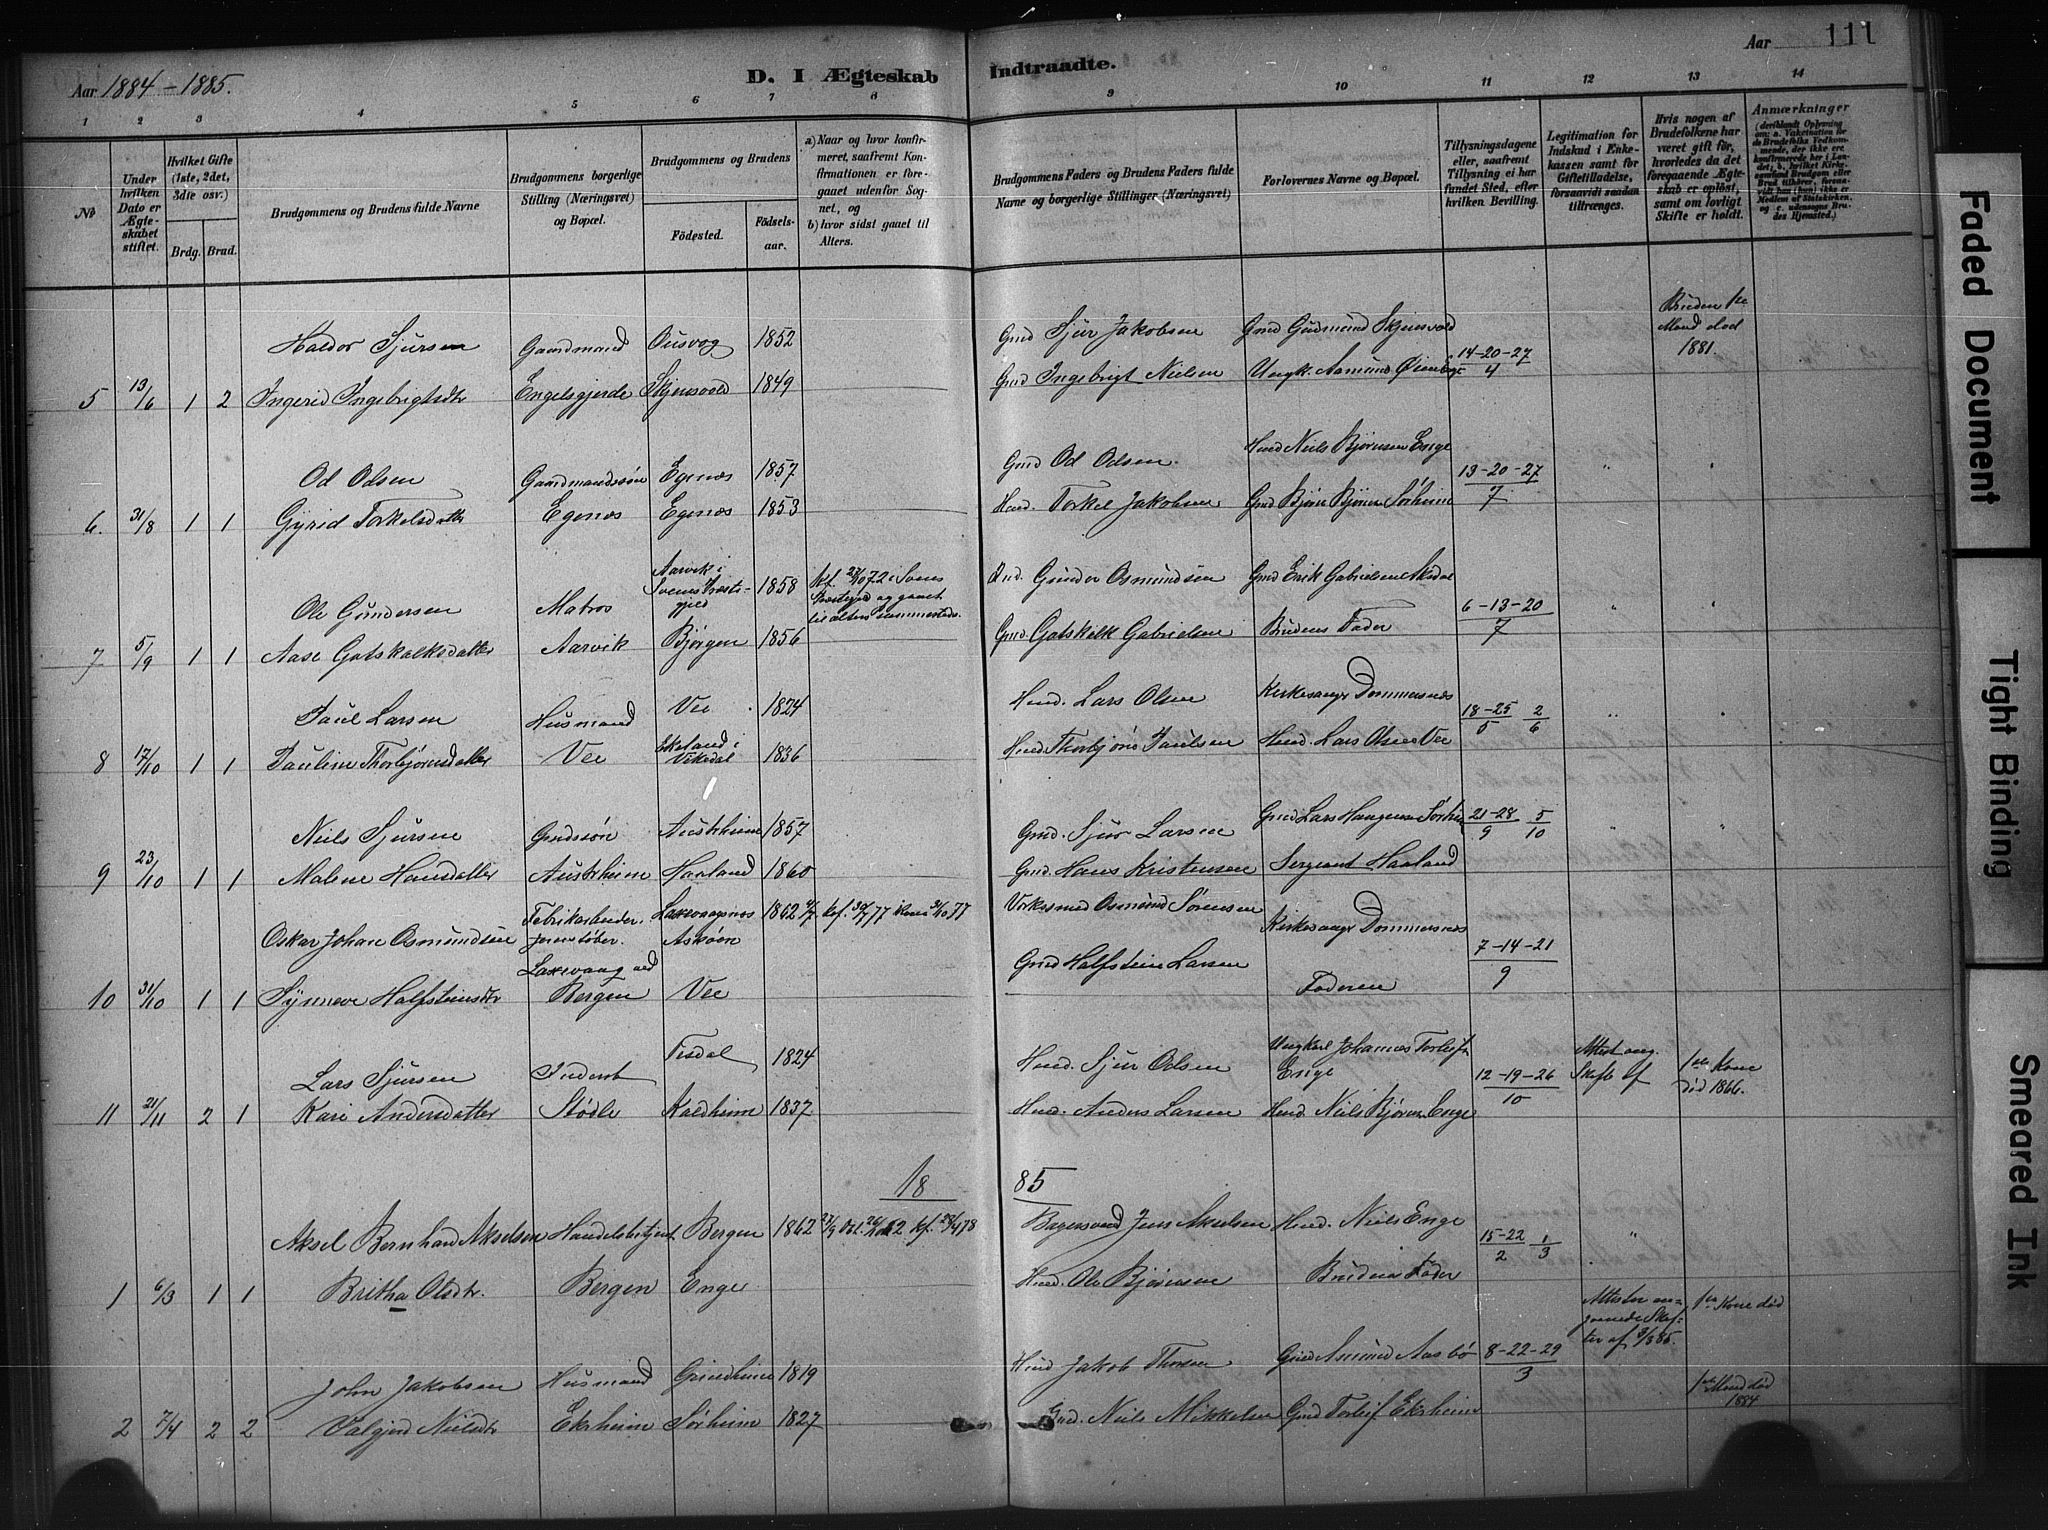 Aar 1884-1885.
D. I Ægteskab Indtraadte.
Aar 111
1 2 3 4 5 6 7 8 9 10 11 12 13 14
No
Under hvilken Dato er Ægteskabet stiftet.
Hvilket Gifte (1ste, 2det, 3die osv.)
Brdg. Brud.
Brudgommens og Brudens fulde Navne
Brudgommens borgerlige Stilling (Næringsvei) og Bopæl.
Brudgommens og Brudens
Födested.
Födselsaar.
a) Naar og hvor konfirmeret, saafremt Konfirmationen er foregaaet udenfor Sognet, og
b) hvor sidst gaaet til Alters.
Brudgommens Faders og Brudens Faders fulde Navne og borgerlige Stillinger (Næringsvei)
Forlovernes Navne og Bopæl.
Tillysningsdagene eller, saafremt Tillysning ei har fundet Sted, efter hvilken Bevilling.
Legitimation for Indskud i Enkekassen samt for Giftetilladelse, forsaavidt saadan tiltrænges.
Hvis nogen af Brudefolkene har været gift för, hvorledes da det foregaaende Ægteskab er oplöst, samt om lovligt Skifte er holdt.
Anmærkninger
Haldor Sjursen Gaardmand Ousvog 1852 Gmd Sjur Jakobsen Gmd Gudmund Skjensvold Bruden 1ste Mand død 1881.
5 13/6 1 2 Ingerid Ingebrigtsdtr Engelsgjerde Skjensvold 1849 Gmd Ingebrigt Nielsen Ungk. Aamund 14-20-27/4
Od Odsen Gaardmandssøn Egenæs 1857 Gmd Od Odsen Hmd Niels Bjørnsen Enge
6. 31/8 1 1 Gyrid Torkelsdatter Egenæs Egenæs 1853 Hmd. Torkel Jakobsen Gmd Bjørn Bjørnsen Sørheim 13-20-27/7
Ole Gundersen Matros Aarvik i Svens Præstegjed 1858 Kf. Gunder Osmundsen Gmd Erik Gabrielsen Aksdal
7 5/9 1 1 Aase Gotskalksdatter Aarvik Bjørgen 1856 Gmd. Gotskalk Gabrielsen Brudens Fader 6-13-20/7
Paul Larsen Husmand Vee 1824 Hmd. Lars Olsen Kirkesanger Dommersnes
8 17/10 1 1 Pauline Thorbjørnsdatter Vee Ekeland i Vikedal 1836 Hmd. Thorbjørn Paulsen Hmd. Lars Olsen Vee 18-25/5 2/6
Niels Sjursen Gmdssøn Austrheim 1857 Gmd. Sjur Larsen Gmd Lars Sørheim
9 23/10 1 1 Malene Hansdatter Austrheim Haaland 1860 Gmd Hans Kristensen Sergeant Haaland 21-28/9 5/10
Oskar Johan Osmundsen Fabrikarbeider. jernstøber. Laxevaagsnes Askøen 1852 4/7 kf. 30/9 77 31/10 77 Værksmed Osmund Sørensen Kirkesanger Dommersnes
10 31/10 1 1 Synneve Halfsteinsdtr Laxevaag ved Bergen Vee Gmd Halfstein Larsen Faderen 7-14-21/9
Lars Sjursen Inderst Tesdal 1824 Hmd. Sjur Odsen Ungkarl Johannes Torleifs Enge Attest ang. Skifte af 1ste Kone død 1866.
11 21/11 2 1 Kari Andersdatter Stødle Kaldheim 1837 Hmd. Anders Larsen Hmd Niels Bjørnsen Enge 12-19-26/10
18 85
Aksel Bernhard Akselsen Handelsbetjent Bergen 1862 27/9 kf. 28/4 78 Jens Akselsen Hmd. Niels Enge
1 6/3 1 1 Britha Olsdtr. Bergen Enge Hmd. Ole Bjørnsen Brudens Fader 15-22/2 1/3
John Jakobsen Husmand Grindheim 1819 Hmd Jakob Thorsen Gmd Amund Aasbø 8-22-29/3 Attester angaaende Skifter af 3/3 85. 1ste Kone død
2 7/4 2 2 Valgjerd Nielsdtr Ekrheim Sørheim 1827 Gmd. Niels Mikkelsen Gmd Torleif Ekrheim 1ste Mand død 1884
Faded Document
Tight Binding
Smeared Ink